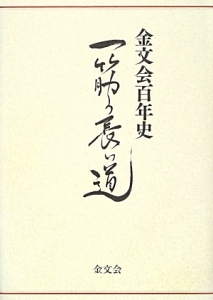 金文会百年史
一筋の長い道
金文会